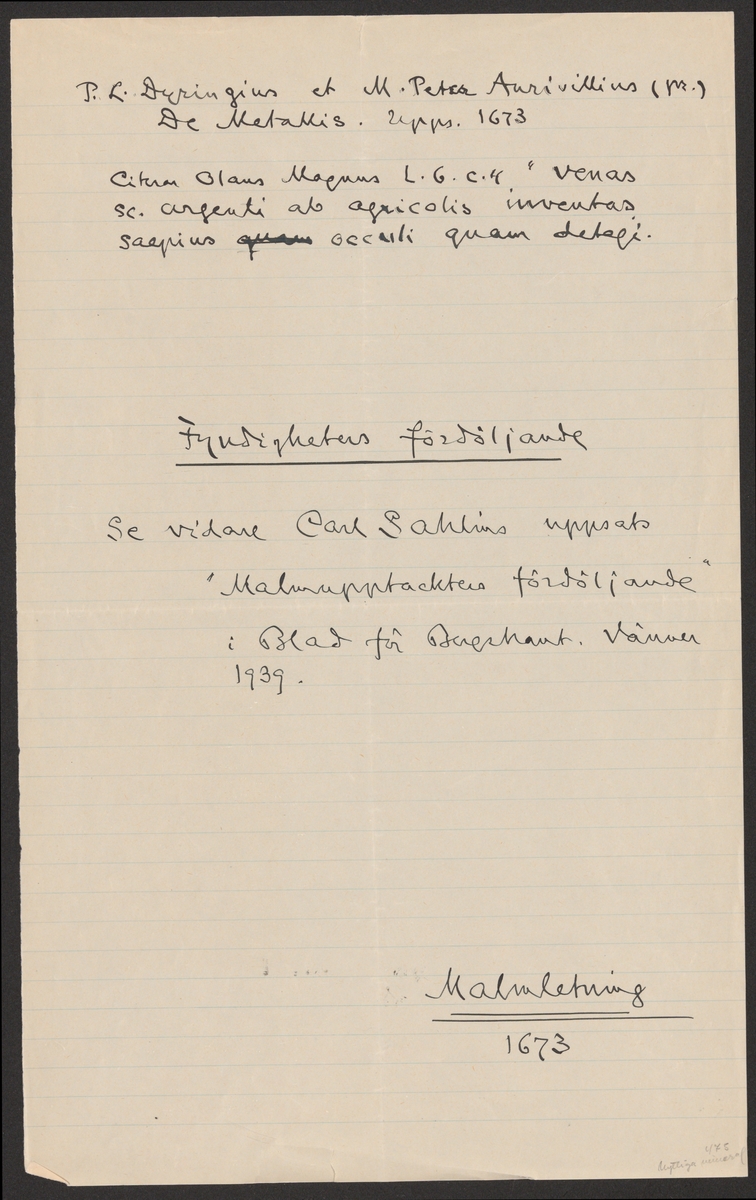 P. L. Dyringius et M. Peter Aurivillius (pr.)
De Metallis. Upps. 1673
Citerar Olaus Magnus L. 6. c. 4 "venas
sc. argenti ab agricolis inventas
saepius quam occuli quam detegi.
Fyndigheters fördöljande
Se vidare Carl Sahlins uppsats
"Malmupptäckters fördöljande"
i Blad för Bergshant. Vänner
1939.
Malmletning
1673
475